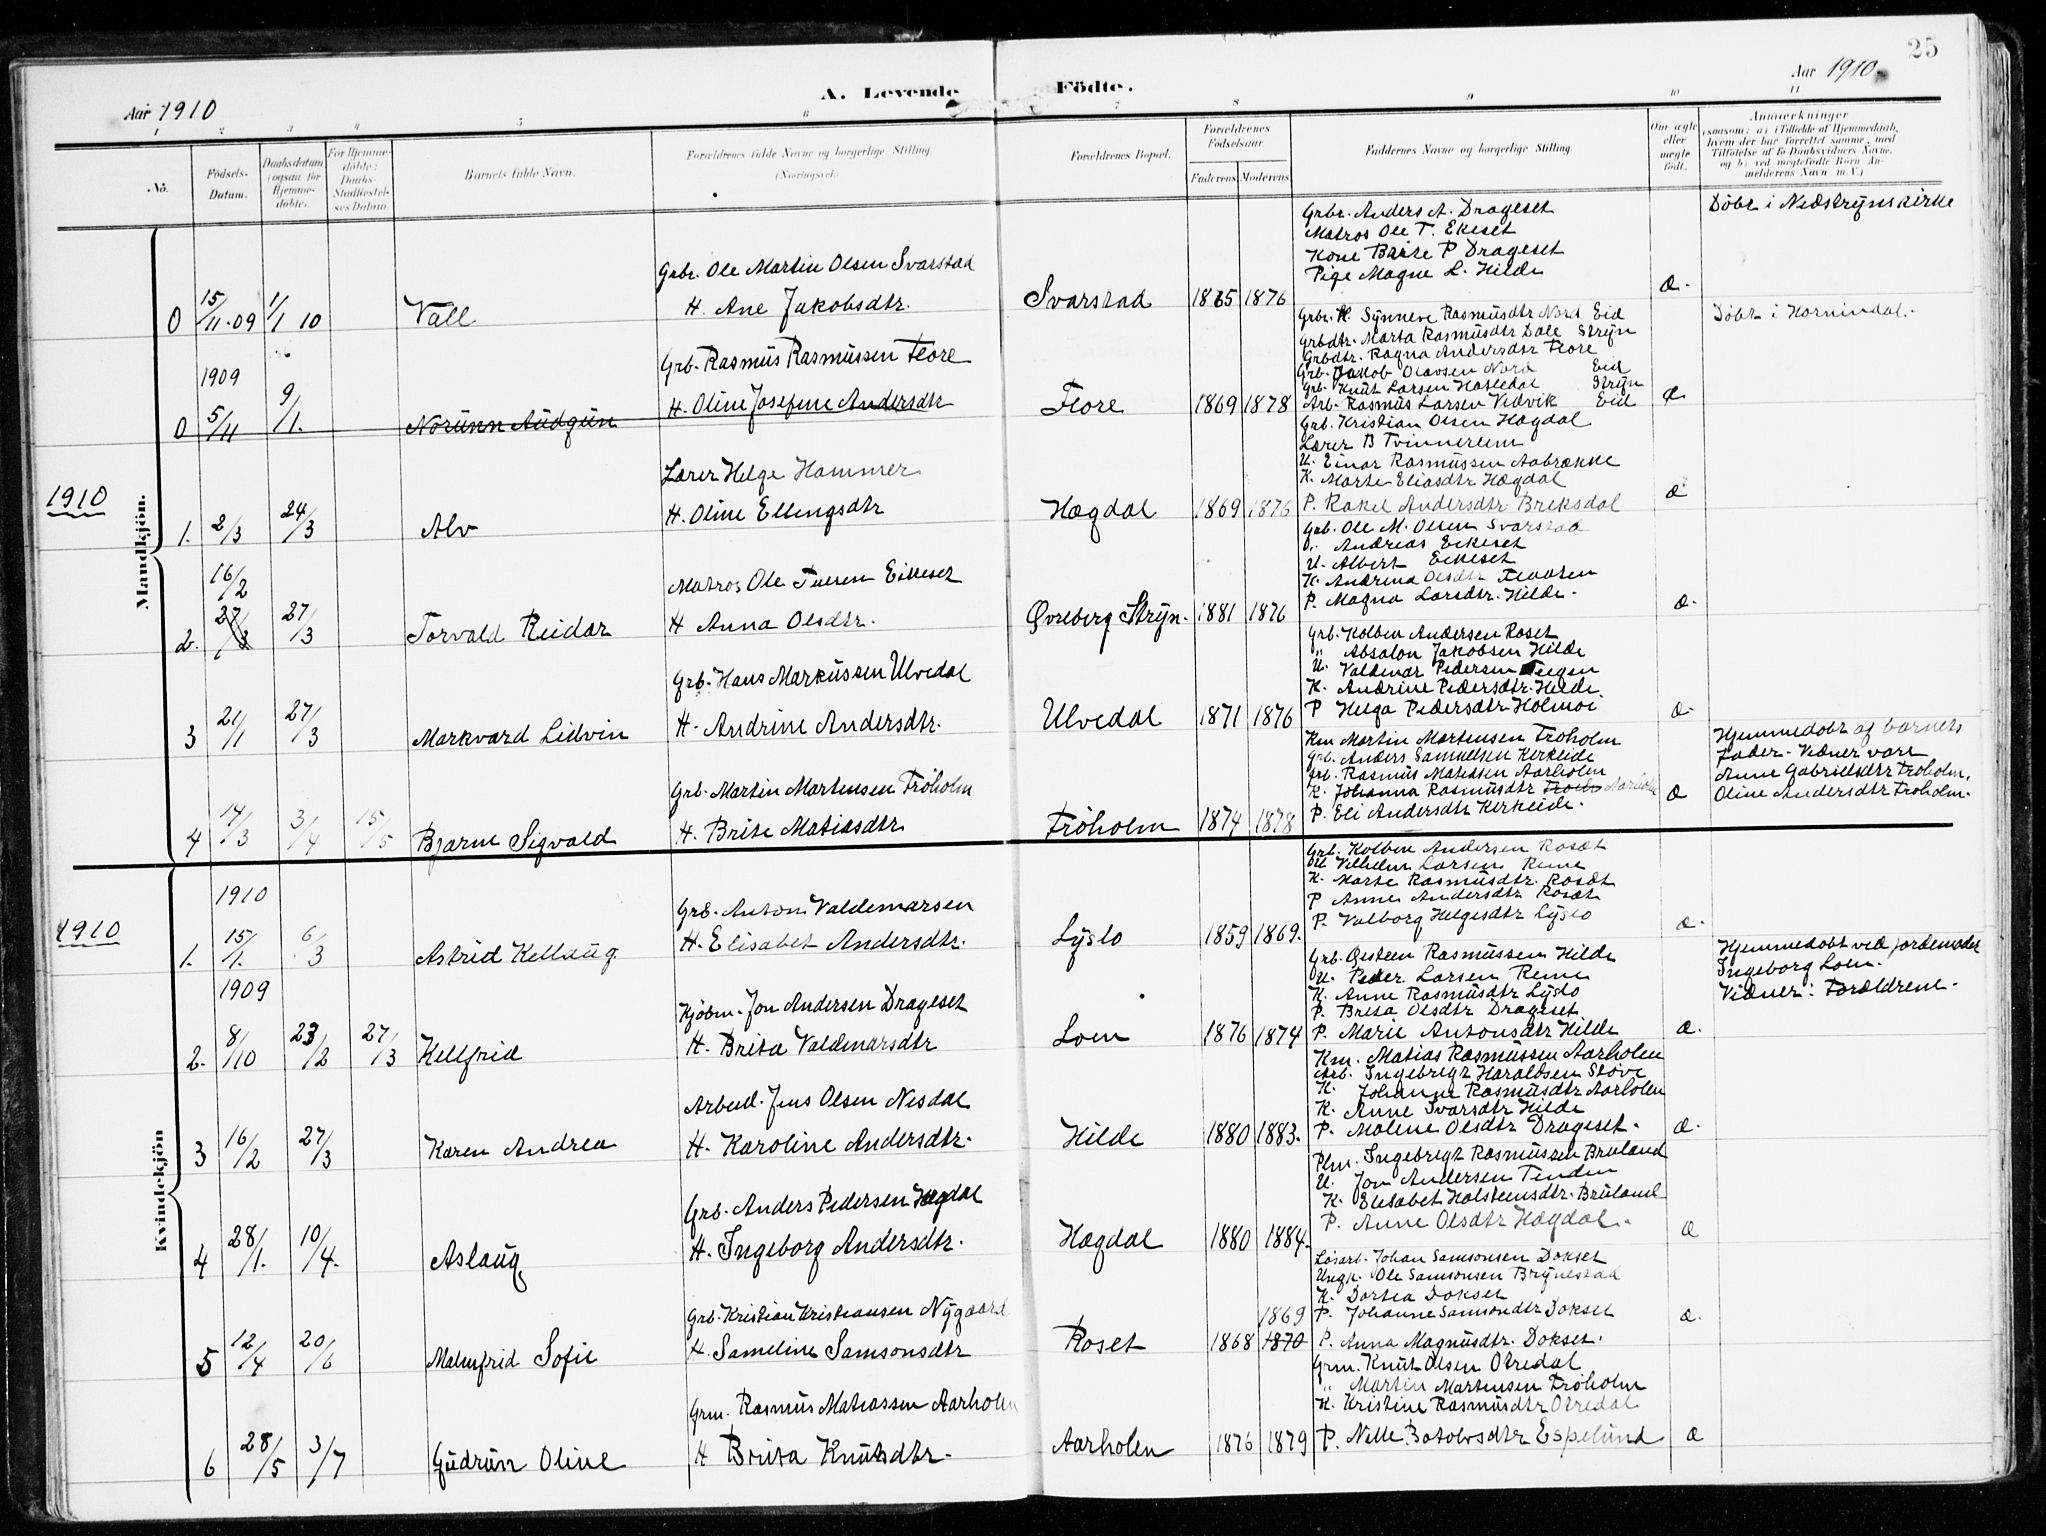 25
Aar 1910
A. Levende Födte.
Aar 1910
1 2 3 4 5 6 7 8 9 10 11
No.
Födsels-Datum.
Daabsdatum (ogsaa for Hjemmedöbte).
For Hjemmedöbte: Daabs-Stadfæstelses Datum.
Barnets fulde Navn.
Forældrenes fulde Navne og borgerlige Stilling (Næringsvei.)
Forældrenes Bopæl.
Forældrenes Födselsaar.
Faderens. Moderens.
Faddernes Navne og borgerlige Stilling.
Om ægte eller uægte födt.
Anmærkninger (saasom: a) i Tilfælde af Hjemmedaab, hvem der har forrettet samme, med Tilföielse af to Daabsvidners Navne, og b) ved uægtefödte Börn Anmelderens Navn m. V.)
Mandkjön.
0 15/11-09 1/1 10 Vall
Grbr. Ole Martin Olsen Svarstad
H. Ane Jakobsdtr.
Svarstad 1865 1876
Grbr. Anders A. Drageset
Matros Ole T. Ekeset
Kone Brite P Drageset
Pige Magne L. Hilde
Æ.
Döbt i Nedstrynskirke
1909
0 5/11 9/1. Norunn Audgun
Grb. Rasmus Rasmussen Flore
H. Oline Josefine Andersdtr
Flore 1869 1878
Grbr. K. Synneve Rasmusdtr Nord Eid
Grbdtr. Marta Rasmusdtr Dale Stryn
Grbdtr. Ragna Andersdtr Flore
Grb. Jakob Olavsen Nord Eid
Grb. Knut Larsen Hasledal Stryn
Arb. Rasmus Larsen Vidvik Eid
Æ
Döbt i Hornindal.
1910
1. 2/3 24/3 Alv
Lærer Helge Hammer
H. Oline Ellingsdtr
Hægdal 1869 1876
Grb. Kristian Olsen Hægdal
Lærer B Tvinnereim
U. Einar Rasmussen Aabrække
K. Marte Eliasdtr Hægdal
P. Rakel Andersdtr Breksdal
Æ
2. 16/2 27/3 27/3 Torvald Reidar
Matros Ole Tuesen Eikeset
H Anna Olsdtr.
Øvreberg Stryn. 1881 1876
Grb. Ole M. Olsen Svarstad
" Andreas Eikeset
U. Albert Eikeset
K. Andrina Olsdtr Flaaten
P. Magna Larsdtr. Hilde.
Æ.
3 21/1 27/3 Markvard Lidvin
Grb. Hans Markussen Ulvedal
H. Andrine Andersdtr.
Ulvedal 1871 1876
Grb. Kolben Andersen Roset
" Absalon Jakobsen Hilde
U. Valdemar Pedersen Teigen
K. Andrine Pedersdtr. Hilde.
P Helga Pedersdtr Holmøi
Æ.
4 14/3 3/4 15/5 Bjarne Sigvald
Grb. Martin Martensen Frøholm
H. Brite Matiasdtr
Frøholm 1874 1878
Km Martin Martensen Frøholm
Grb. Anders Samuelsen Kirkeide
Grb. Rasmus Matiasen Aarholen
K. Johanna Rasmusdtr Aarholen
P. Eli Andersdtr Kirkeide.
Æ
Hjemmedøbt af barnets
fader. Vidner vare
Anne Gabrielsdtr Frøholm,
Oline Andersdtr Frøholm.
Kvindekjön
1910
1910
1. 15/1. 6/3 Astrid Kellaug
Grb. Anton Valdemarsen
H. Elisabet Andersdtr.
Lyslo 1859 1869.
Grb. Kolben Andersen Rosæt
U Vilhelm Larsen Reme
K. Marte Rasmusdtr. Rosæt
P Anne Andersdtr Rosæt
P. Valborg Helgesdtr Lyslo
Æ.
1909
2. 8/10 23/2 27/3 Kellfrid
Kjøbm. Jon Andersen Drageset
H. Brita Valdemarsdtr
Loen 1876 1874
Grb. Østeen Rasmussen Hilde
U. Peder Larsen Reme
K. Anne Rasmusdtr Lyslo
P. Brita Olsdtr Drageset
P. Marie Antonsdtr Hilde
Æ.
Hjemmedøbt ved jordemoder
Ingeborg Loen.
Vidner: Forældrene.
3 16/2 27/3 Karen Andrea
Arbeid. Jens Olsen Nesdal
H. Karoline Andersdtr.
Hilde 1880 1883.
Km. Matias Rasmussen Aarholen
Arb. Ingebregt Haraldsen Støve
K. Johanne Rasmusdtr Aarholen
K. Anne Ivarsdtr Hilde
P. Malene Olsdtr Drageset.
Æ.
4 28/1. 10/4. Aslaug
Grb. Anders Pedersen Hægdal
H. Ingeborg Andersdtr.
Hægdal 1880 1884.
Plm. Ingebregt Rasmussen Bruland
U. Jon Andersen Tenden
K. Elisabet Holsteensdtr. Bruland
P. Anne Olsdtr Hægdal.
Æ
5 12/4 20/6 Malmfrid Sofie
Grb. Kristian Kristiansen Nygaard
H. Sameline Samsonsdtr
Roset 1868 1869 1870
Løsarb. Johan Samsonsen Dokset
Ungk. Ole Samsonsen Brynestad
K. Dortea Dokset
P. Johanne Samsondtr Dokset
P. Anna Magnusdtr. Dokset.
Æ.
6 28/5 3/7 Gudrun Oline
Grm. Rasmus Matiassen Aarholen
H Brita Knutsdtr.
Aarholen 1876 1879
Grm. Knut Olsen Otredal
" Martin Martensen Frøholm
K. Kristine Rasmusdtr Otredal
P. Nille Botolvsdtr Espelund
Æ